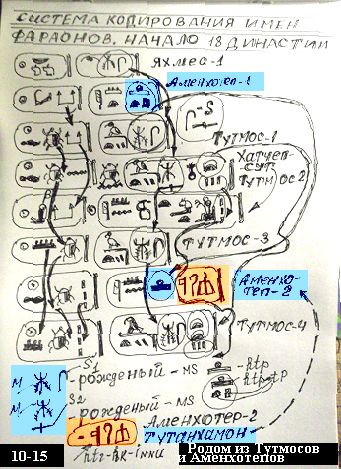 СИСТЕМА КОДИРОВАНИЯ ИМЕН
ФАРАОНОВ. НАЧАЛО 18 ДИНАСТИИ
ЯХМЕС-1
АМЕНХОТЕП-1
-S
ТУТМОС-1
ХАТШЕП-
СУТ
ТУТМОС 2
ТУТМОС-3
АМЕНХО-
ТЕП-2
ТУТМОС-4
M
-S1
-рожденый - MS
S2
M
-рожденый - MS
-htp
АМЕНХОТЕР-2
ТУТАНХАМОН
10-15
Родом из Тутмосов
и Аменхотепов